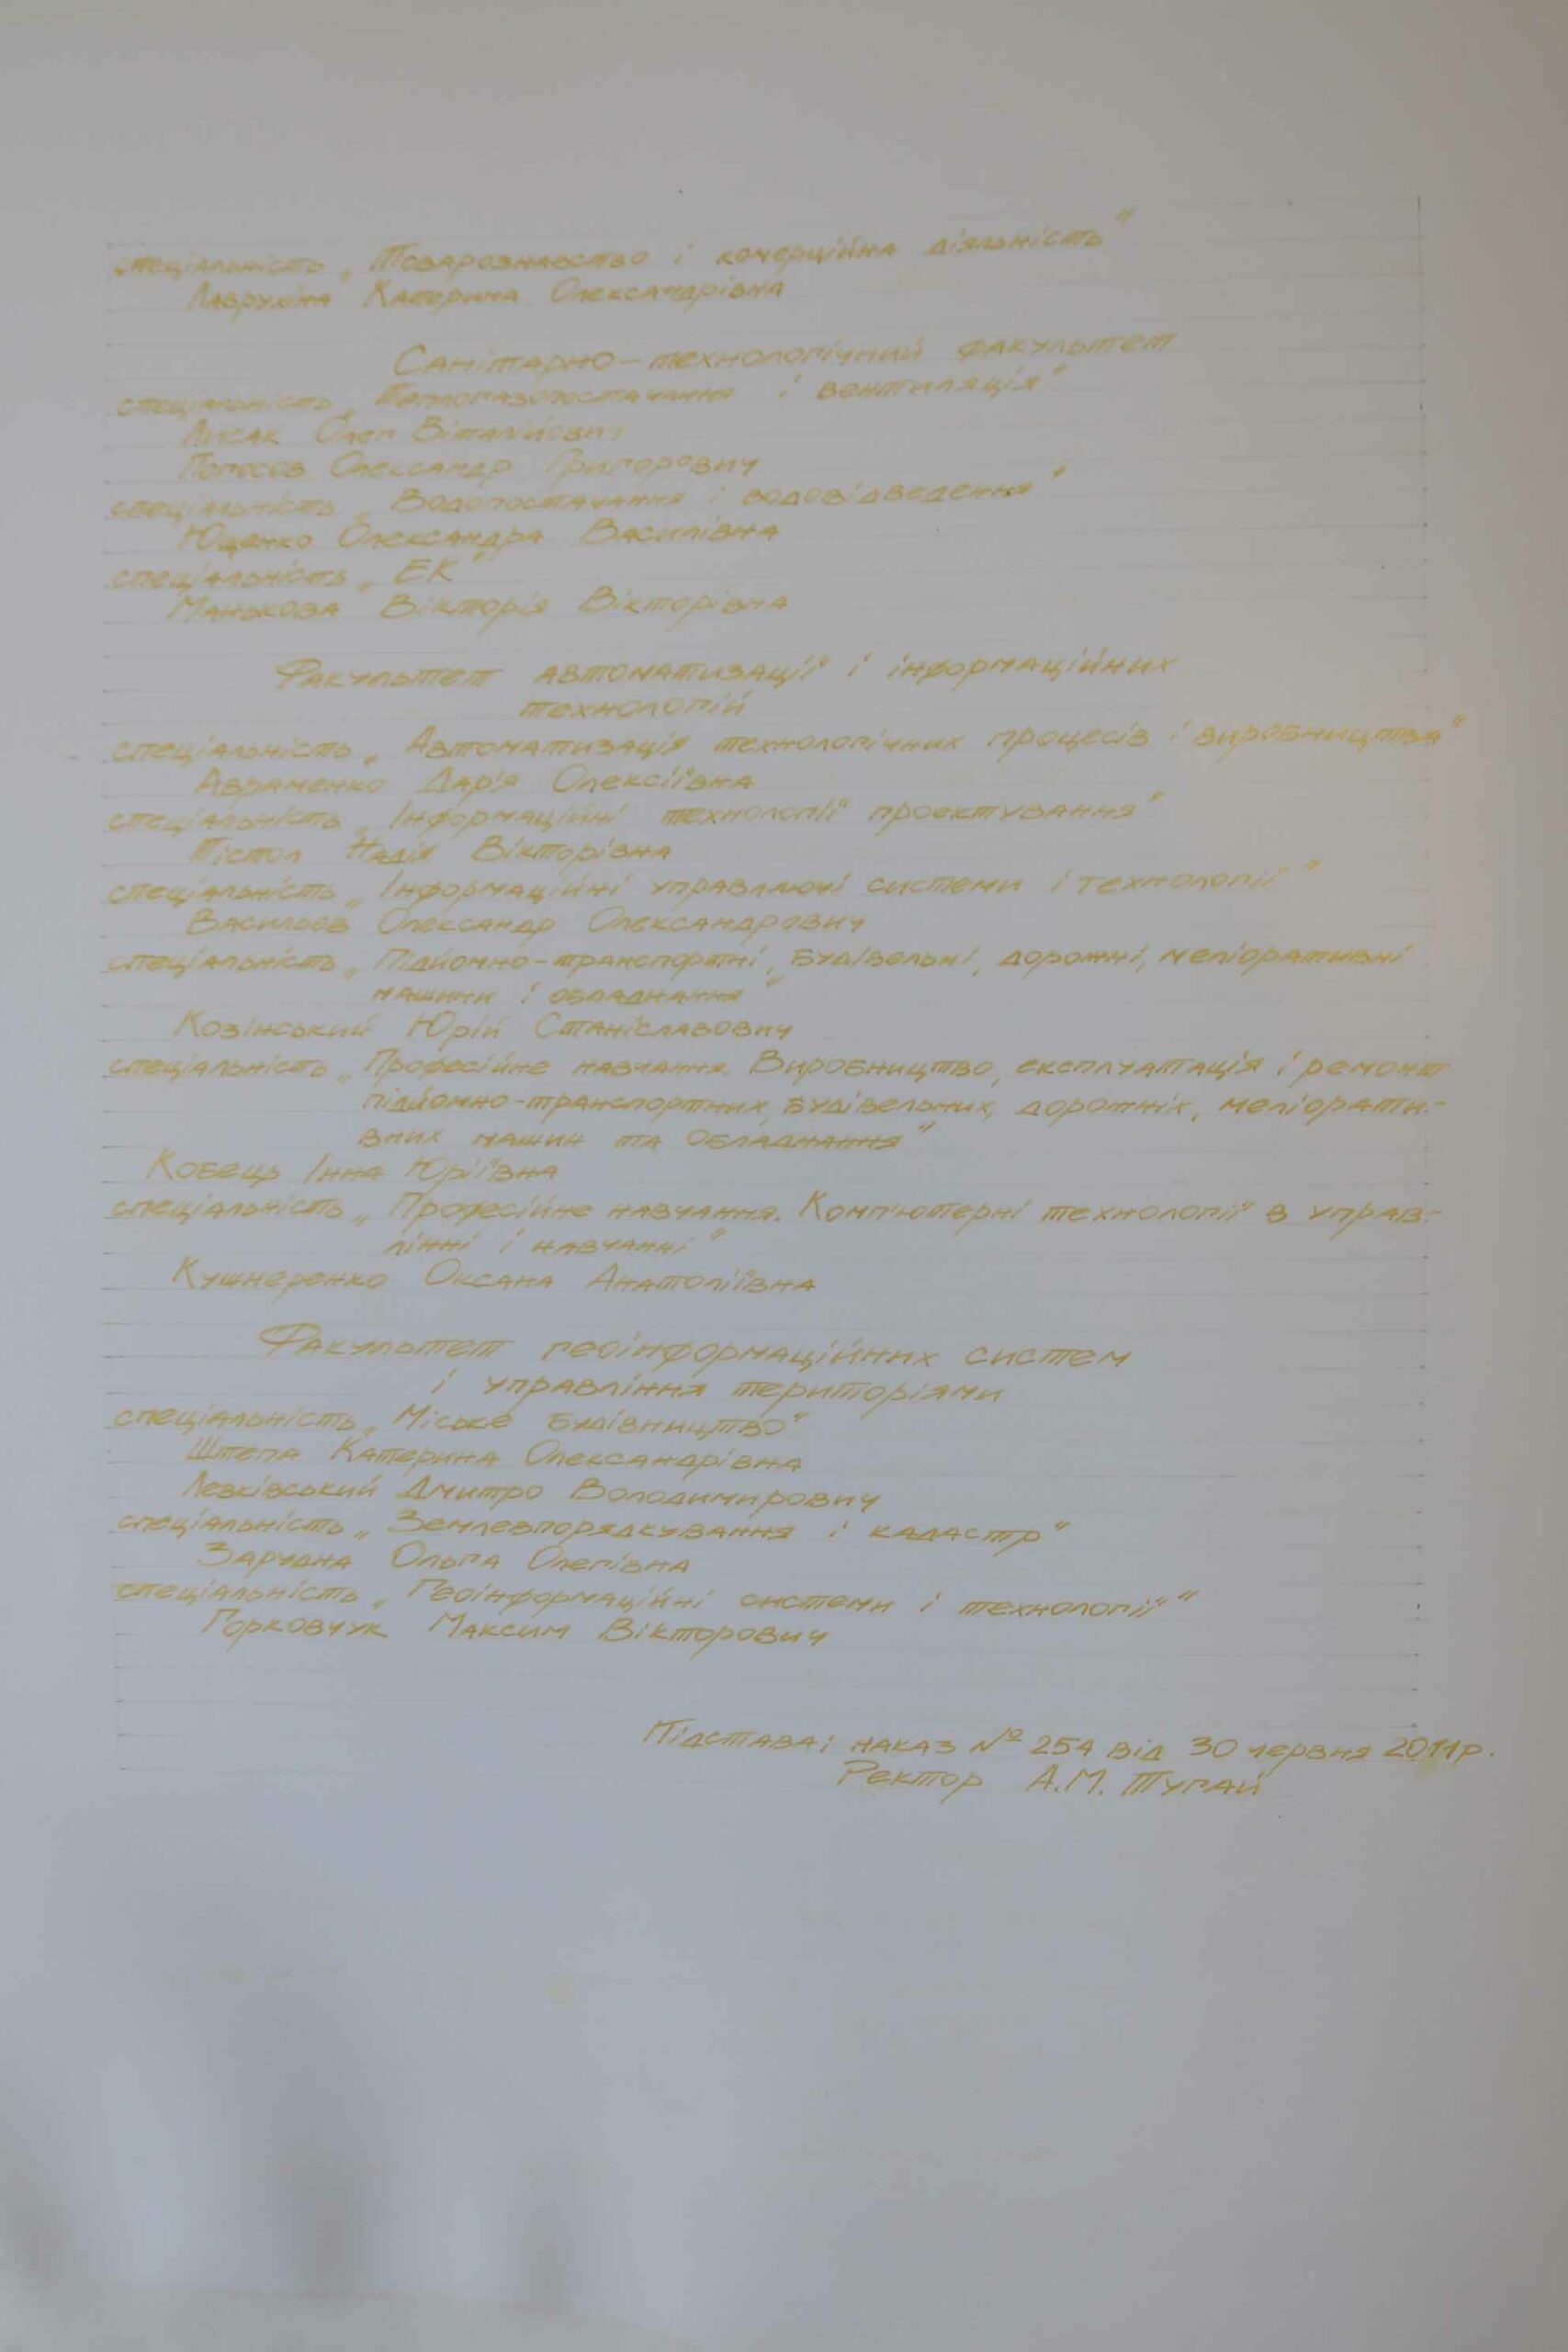 спеціальність „Товарознавство і комерційна діяльність"
Лаврухіна Катерина Олександрівна
Санітарно-технологічний факультет
спеціальність „Теплогазопостачання і вентиляція"
Лисак Олег Віталійович
Погосов Олександр Григорович
спеціальність „Водопостачання і водовідведення"
Ющенко Олександра Василівна
спеціальність „ЕК"
Манькова Вікторія Вікторівна
Факультет автоматизації і інформаційних
технологій
спеціальність „Автоматизація технологічних процесів і виробництва"
Авраменко Дар'я Олексіївна
спеціальність „Інформаційні технології проектування"
Пістол Надія Вікторівна
спеціальність „Інформаційні управляючі системи і технології"
Васильєв Олександр Олександрович
спеціальність „Підйомно-транспортні, будівельні, дорожні, меліоративні
машини і обладнання"
Козінський Юрій Станіславович
спеціальність „Професійне навчання. Виробництво, експлуатація і ремонт
підйомно-транспортних, будівельних, дорожніх, меліорати-
вних машин та обладнання"
Кобець Інна Юріївна
спеціальність „Професійне навчання. Комп'ютерні технології в управ-
лінні і навчанні"
Кушнеренко Оксана Анатоліївна
Факультет геоінформаційних систем
і управління територіями
спеціальність „Міське будівництво"
Штепа Катерина Олександрівна
Левківський Дмитро Володимирович
спеціальність „Землевпорядкування і кадастр"
Зарудна Ольга Олегівна
спеціальність „Геоінформаційні системи і технології"
Горковчук Максим Вікторович
Підстава: наказ № 254 від 30 червня 2011р.
Ректор А.М. Тугай